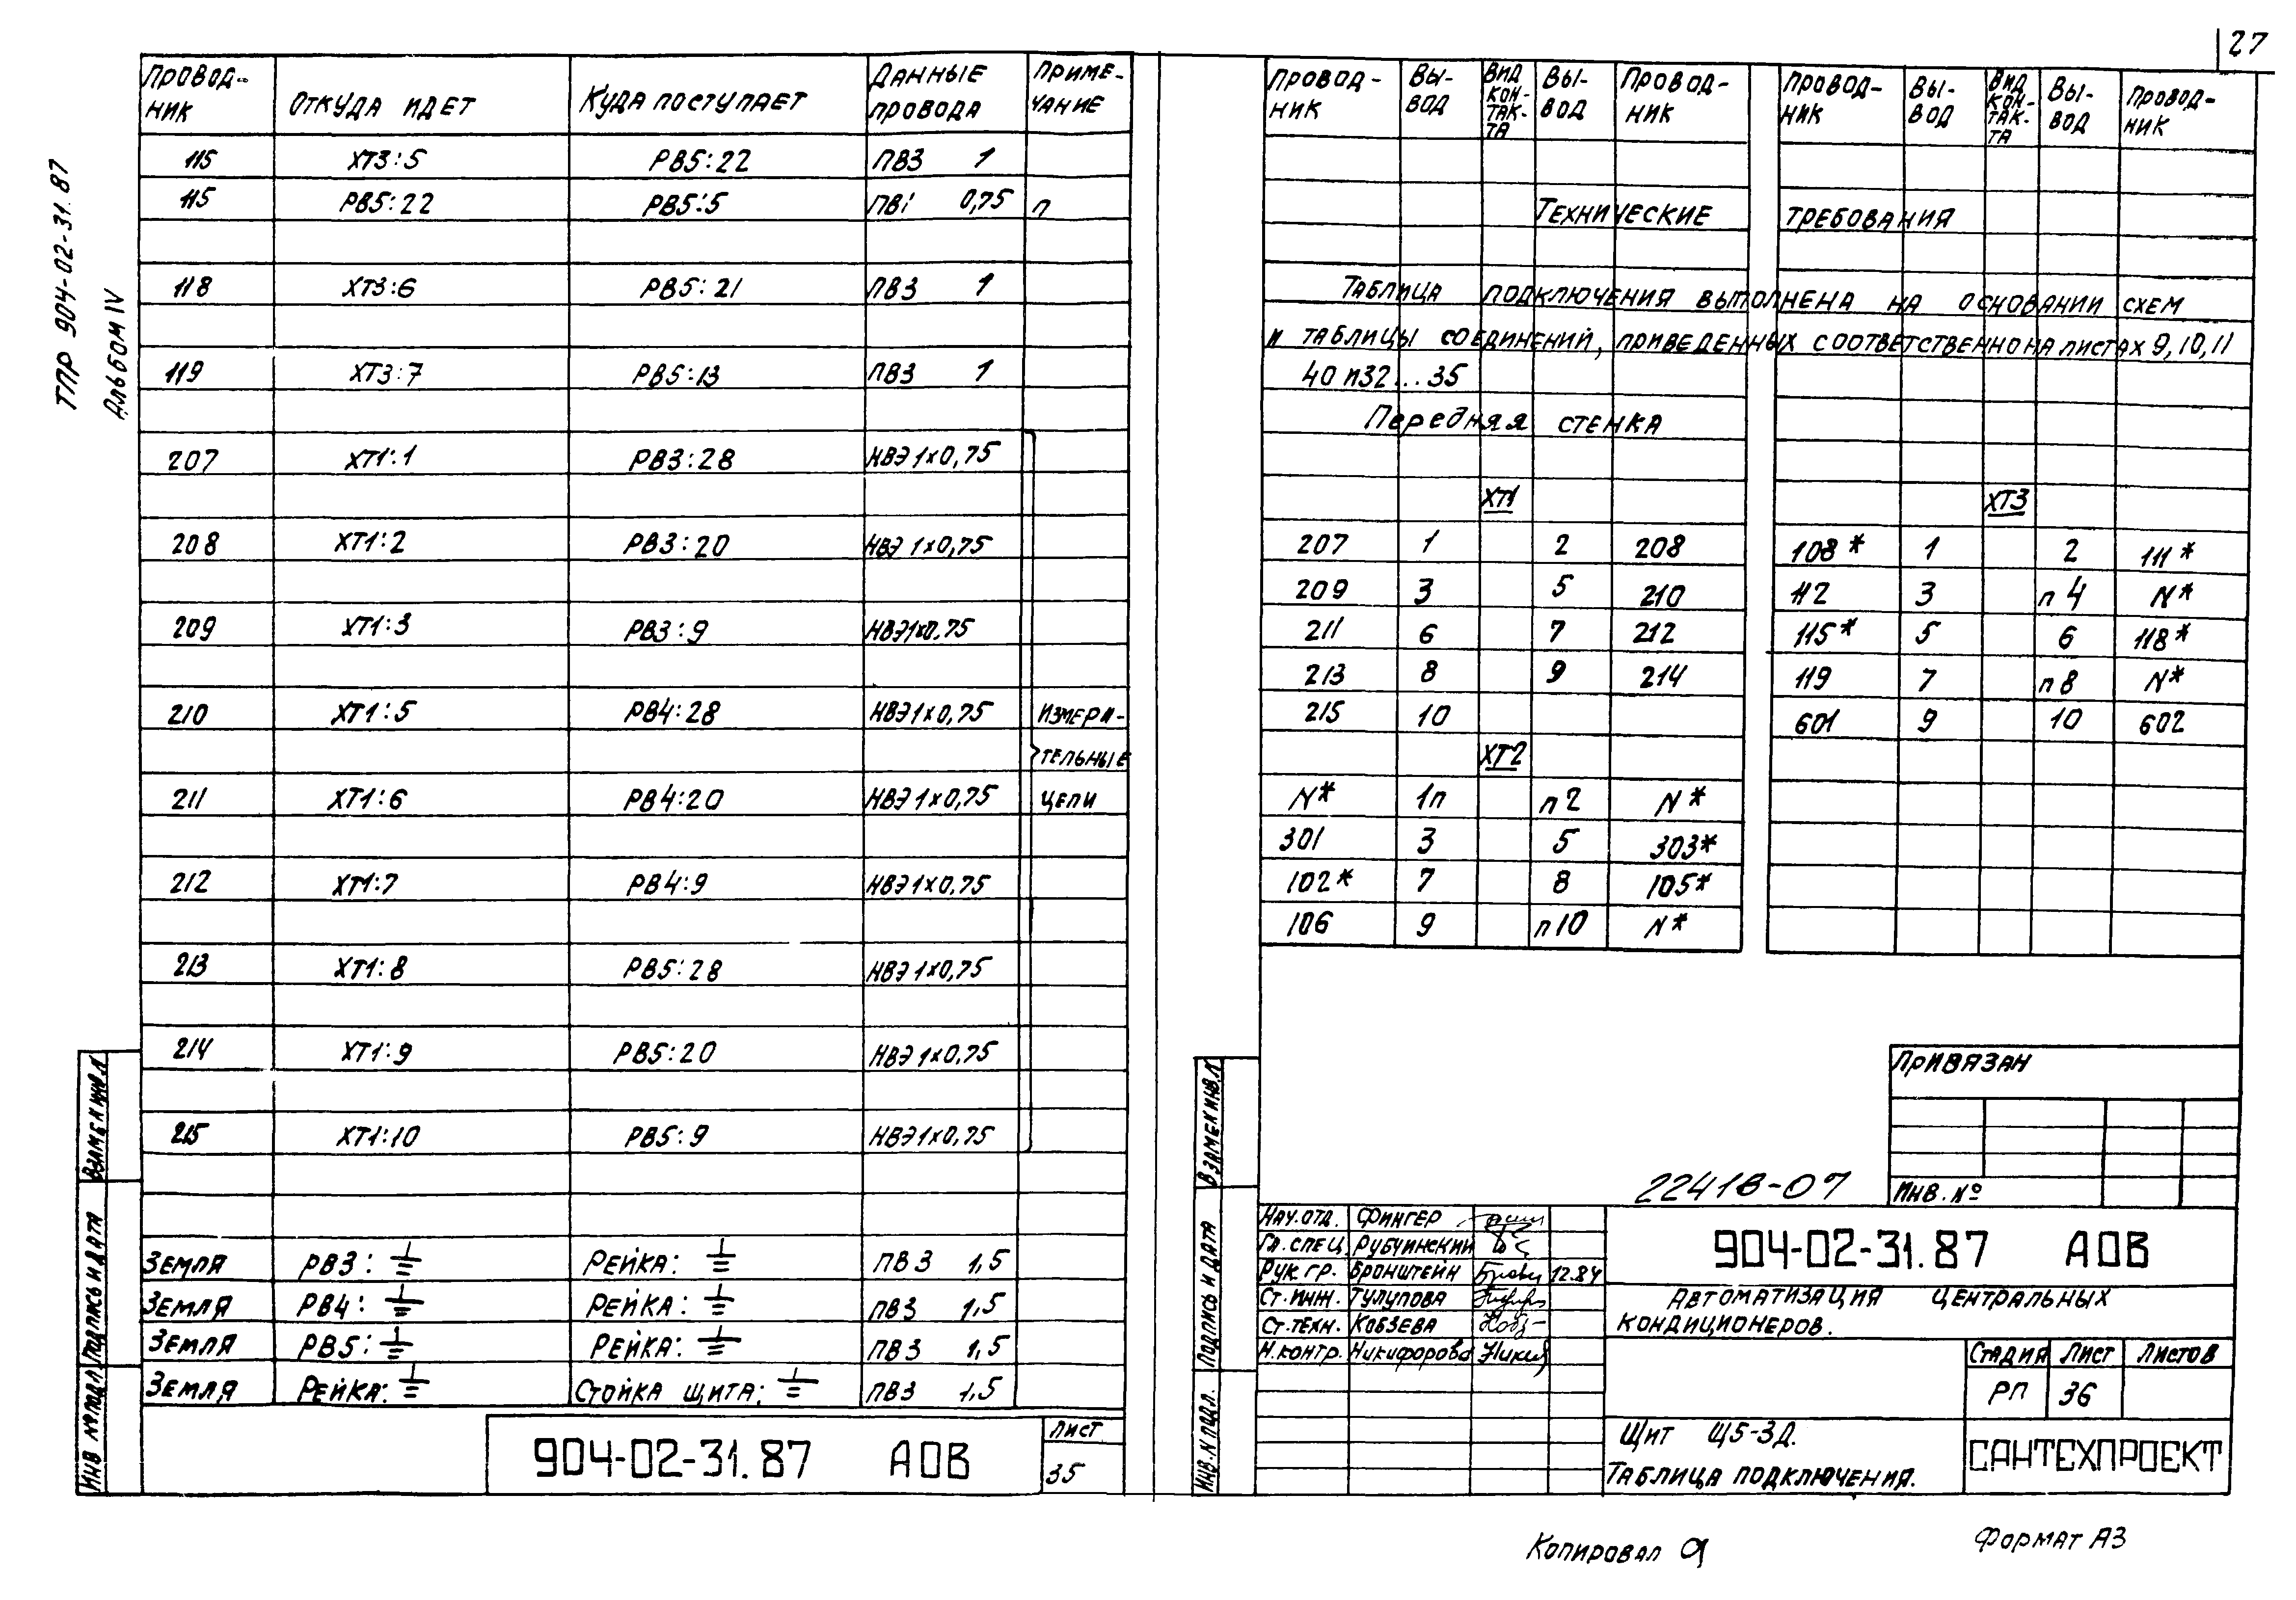 27
ТПР 904-02-31.87
Альбом IV
Провод-ник | Откуда идет | Куда поступает | Данные провода | Приме-чание
115 | XT3:5 | PB5:22 | ПВ3 1
115 | PB5:22 | PB5:5 | ПВ1 0,75 | п
118 | XT3:6 | PB5:21 | ПВ3 1
119 | XT3:7 | PB5:13 | ПВ3 1
207 | XT1:1 | PB3:28 | НВЭ 1х0,75
208 | XT1:2 | PB3:20 | НВЭ 1х0,75
209 | XT1:3 | PB3:9 | НВЭ 1х0,75
210 | XT1:5 | PB4:28 | НВЭ 1х0,75 | Измери-
тельные
211 | XT1:6 | PB4:20 | НВЭ 1х0,75 | цепи
212 | XT1:7 | PB4:9 | НВЭ 1х0,75
213 | XT1:8 | PB5:28 | НВЭ 1х0,75
214 | XT1:9 | PB5:20 | НВЭ 1х0,75
215 | XT1:10 | PB5:9 | НВЭ 1х0,75
Земля | PB3: ⏚ | Рейка: ⏚ | ПВ3 1,5
Земля | PB4: ⏚ | Рейка: ⏚ | ПВ3 1,5
Земля | PB5: ⏚ | Рейка: ⏚ | ПВ3 1,5
Земля | Рейка: ⏚ | Стойка щита: ⏚ | ПВ3 1,5
904-02-31.87 АОВ
Лист
35
Взамен инв.№
Подпись и дата
Инв № подл
Провод-ник | Вы-вод | Вид кон-так-та | Вы-вод | Провод-ник | Провод-ник | Вы-вод | Вид кон-так-та | Вы-вод | Провод-ник
Технические требования
Таблица подключения выполнена на основании схем
и таблицы соединений, приведенных соответственно на листах 9,10,11
40 и 32...35
Передняя стенка
XT1 | XT3
207 | 1 | 2 | 208 | 108* | 1 | 2 | 111*
209 | 3 | 5 | 210 | 112 | 3 | п4 | N*
211 | 6 | 7 | 212 | 115* | 5 | 6 | 118*
213 | 8 | 9 | 214 | 119 | 7 | п8 | N*
215 | 10 | 601 | 9 | 10 | 602
XT2
N* | 1п | п2 | N*
301 | 3 | 5 | 303*
102* | 7 | 8 | 105*
106 | 9 | п10 | N*
Привязан
Инв. №
22418-07
Взамен инв.№
Подпись и дата
Инв. N подл.
Нач.отд. Фингер
Гл.спец. Рубчинский
Рук.гр. Бронштейн 12.84
Ст.инж. Тулупова
Ст.техн. Кобзева
Н.контр. Никифорова
904-02-31.87 АОВ
Автоматизация центральных
кондиционеров.
Стадия Лист Листов
РП 36
Щит Щ5-3Д.
Таблица подключения.
САНТЕХПРОЕКТ
Копировал
Формат А3